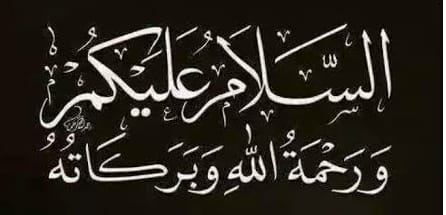 السَّلَامُ عَلَيْكُمُ
وَرَحْمَةُ اللهِ وَبَرَكَاتُهُ